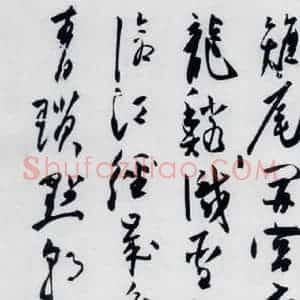 雉尾開宮
龍鱗識聖
滄江經歲
青瑣點朝
Shufaziliao.com